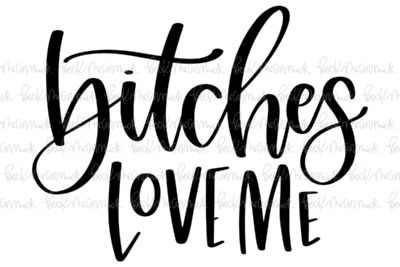 bitches
LOVE ME